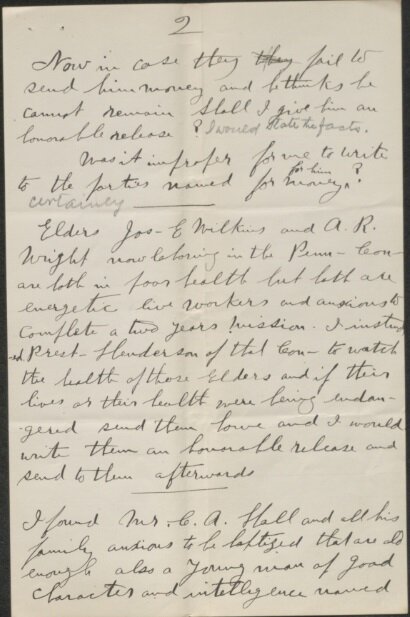 2
Now in case they they fail to
send him money and he thinks he
cannot remain Shall I give him an
honorable release ? I would State the facts.
Was it improper for me to write
to the parties named for him for money. ?
certainley
Elders Jos- E Wilkins and A. R.
Wright now laboring in the Penn- Con-
are both in poor health but both are
energetic live workers and anxious to
complete a two years Mission. I instruct
ed Prest- Henderson of that Con- to watch
the health of those Elders and if their
lives or their health were being endan-
gered send them home and I would
write them an honorable release and
send to them afterwards
I found Mr. C. A. Hall and all his
family anxious to be baptized that are old
enough also a Young man of good
character and intelligence named